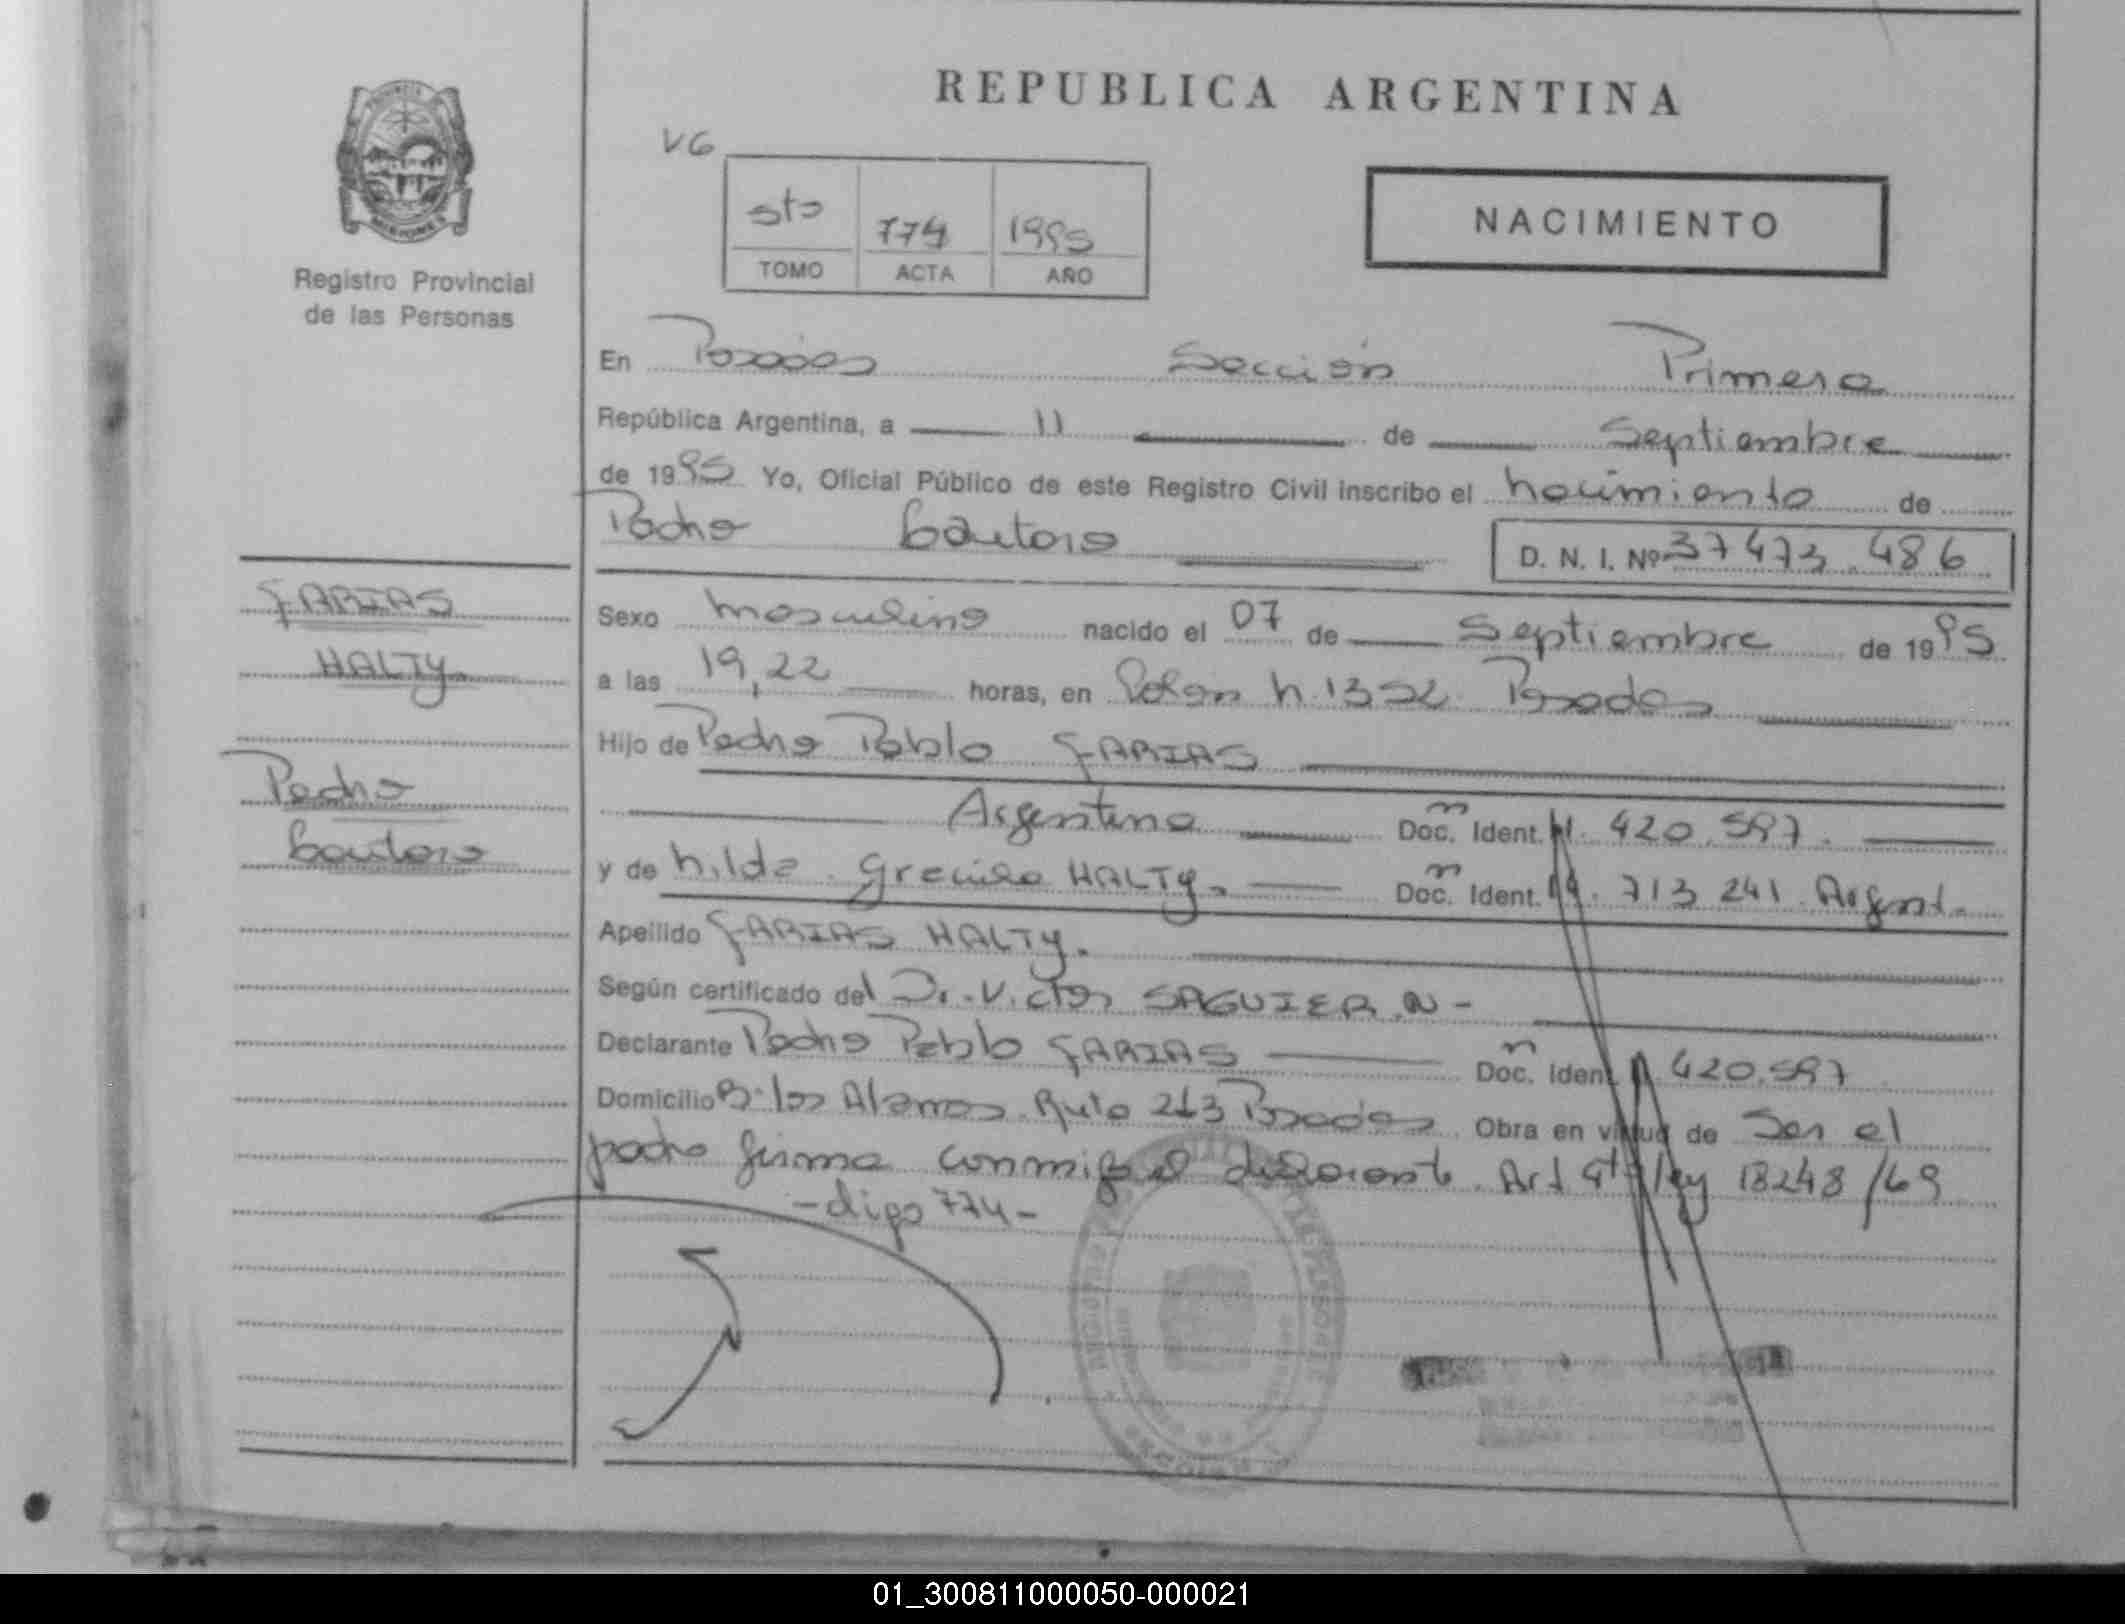 REPUBLICA ARGENTINA
V6
5to 774 1995
TOMO ACTA AÑO
NACIMIENTO
Registro Provincial
de las Personas
En Posadas Sección Primera
República Argentina, a 11 de Septiembre
de 1995 Yo, Oficial Público de este Registro Civil inscribo el nacimiento de
Pedro Lautaro D. N. I. Nº 37 473.486
FARIAS
HALTY
Pedro
Lautaro
Sexo masculino nacido el 07 de Septiembre de 1995
a las 19,22 horas, en Posadas
Hijo de Pedro Pablo FARIAS
Argentino Doc. Ident. 420.597.
y de Hilda Graciela HALTY. Doc. Ident. 713 241 Argent.
Apellido FARIAS HALTY.
Según certificado del Dr. Victor SAGUIER.
Declarante Pedro Pablo FARIAS Doc. Ident. 420.597
Domicilio Bº los Alamos Ruta 213 Posadas Obra en virtud de Ser el
padre firma conmigo el declarante. Art 4to ley 18248/69
-digo 774-
01_300811000050-000021